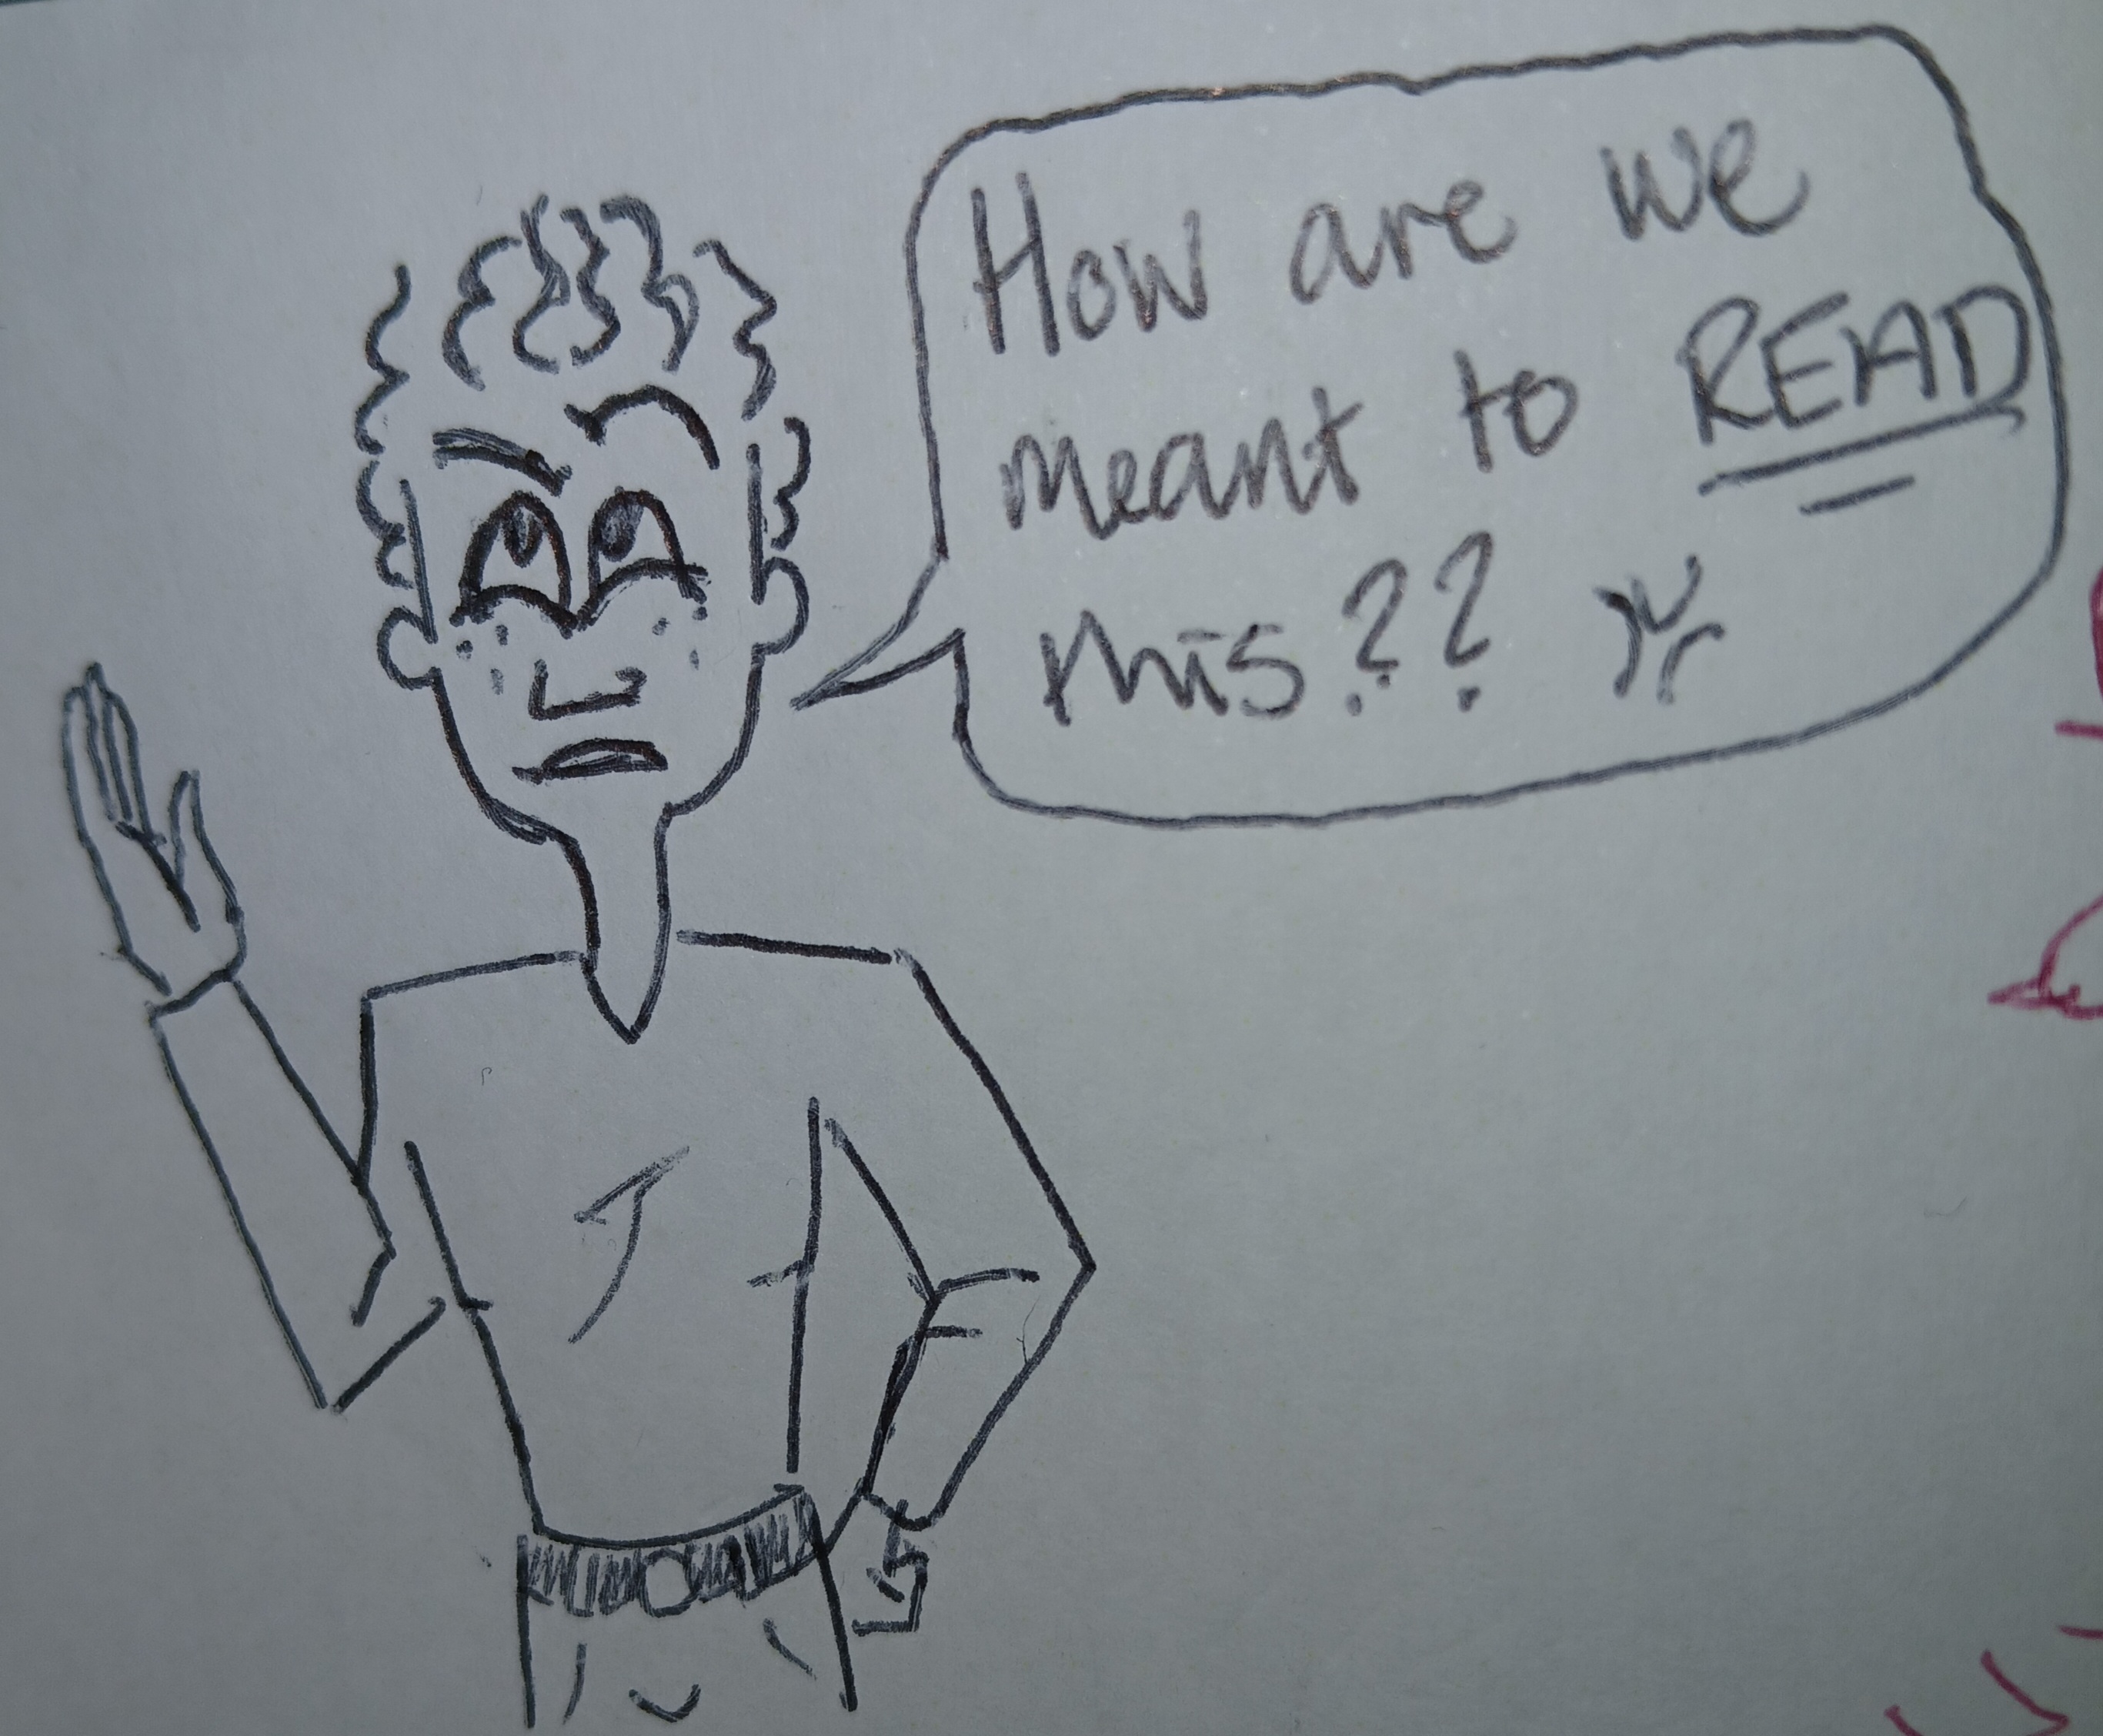 How are we
meant to READ
this??